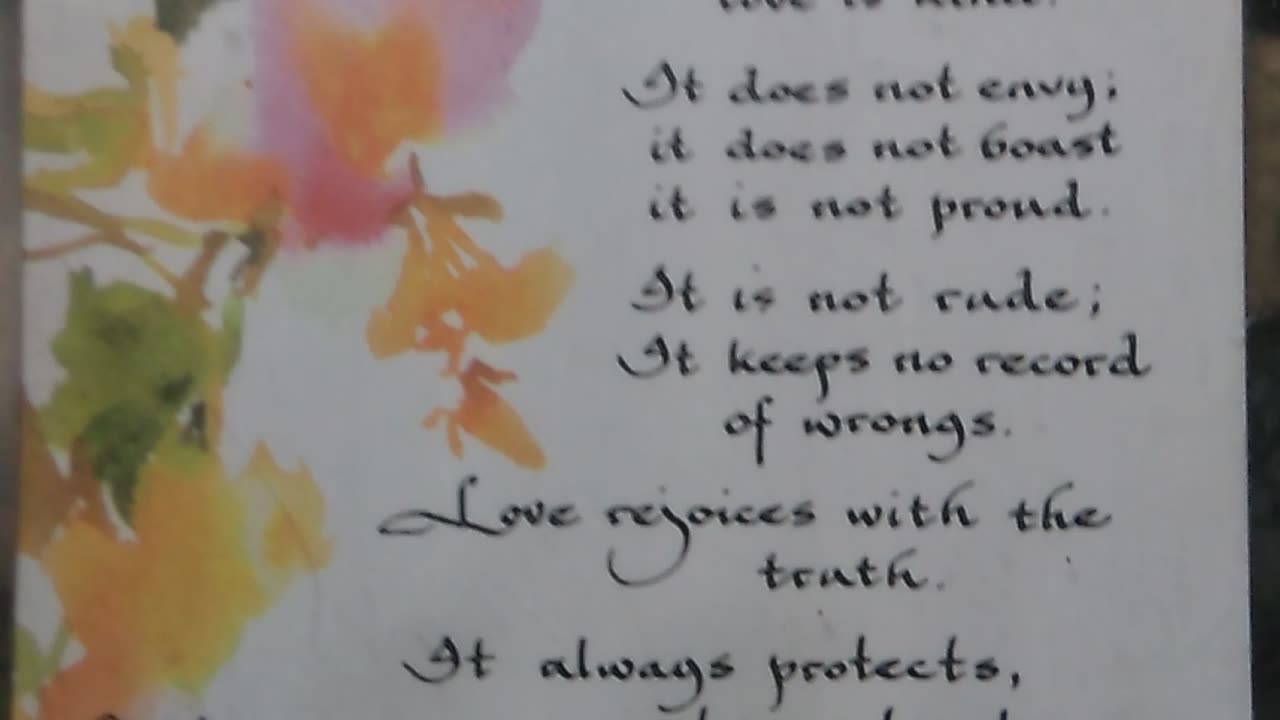 love is kind.
It does not envy;
it does not boast
it is not proud.
It is not rude;
It keeps no record
of wrongs.
Love rejoices with the
truth.
It always protects,